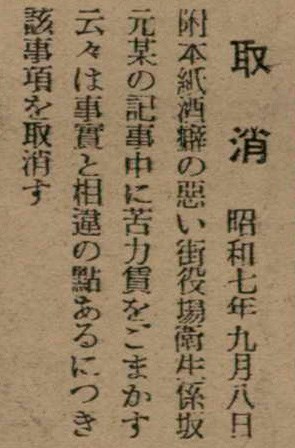 取消　昭和七年九月八日
附本紙酒癖の惡い街役場衛生係坂
元某の記事中に苦力賃をごまかす
云々は事實と相違の點あるにつき
該事項を取消す